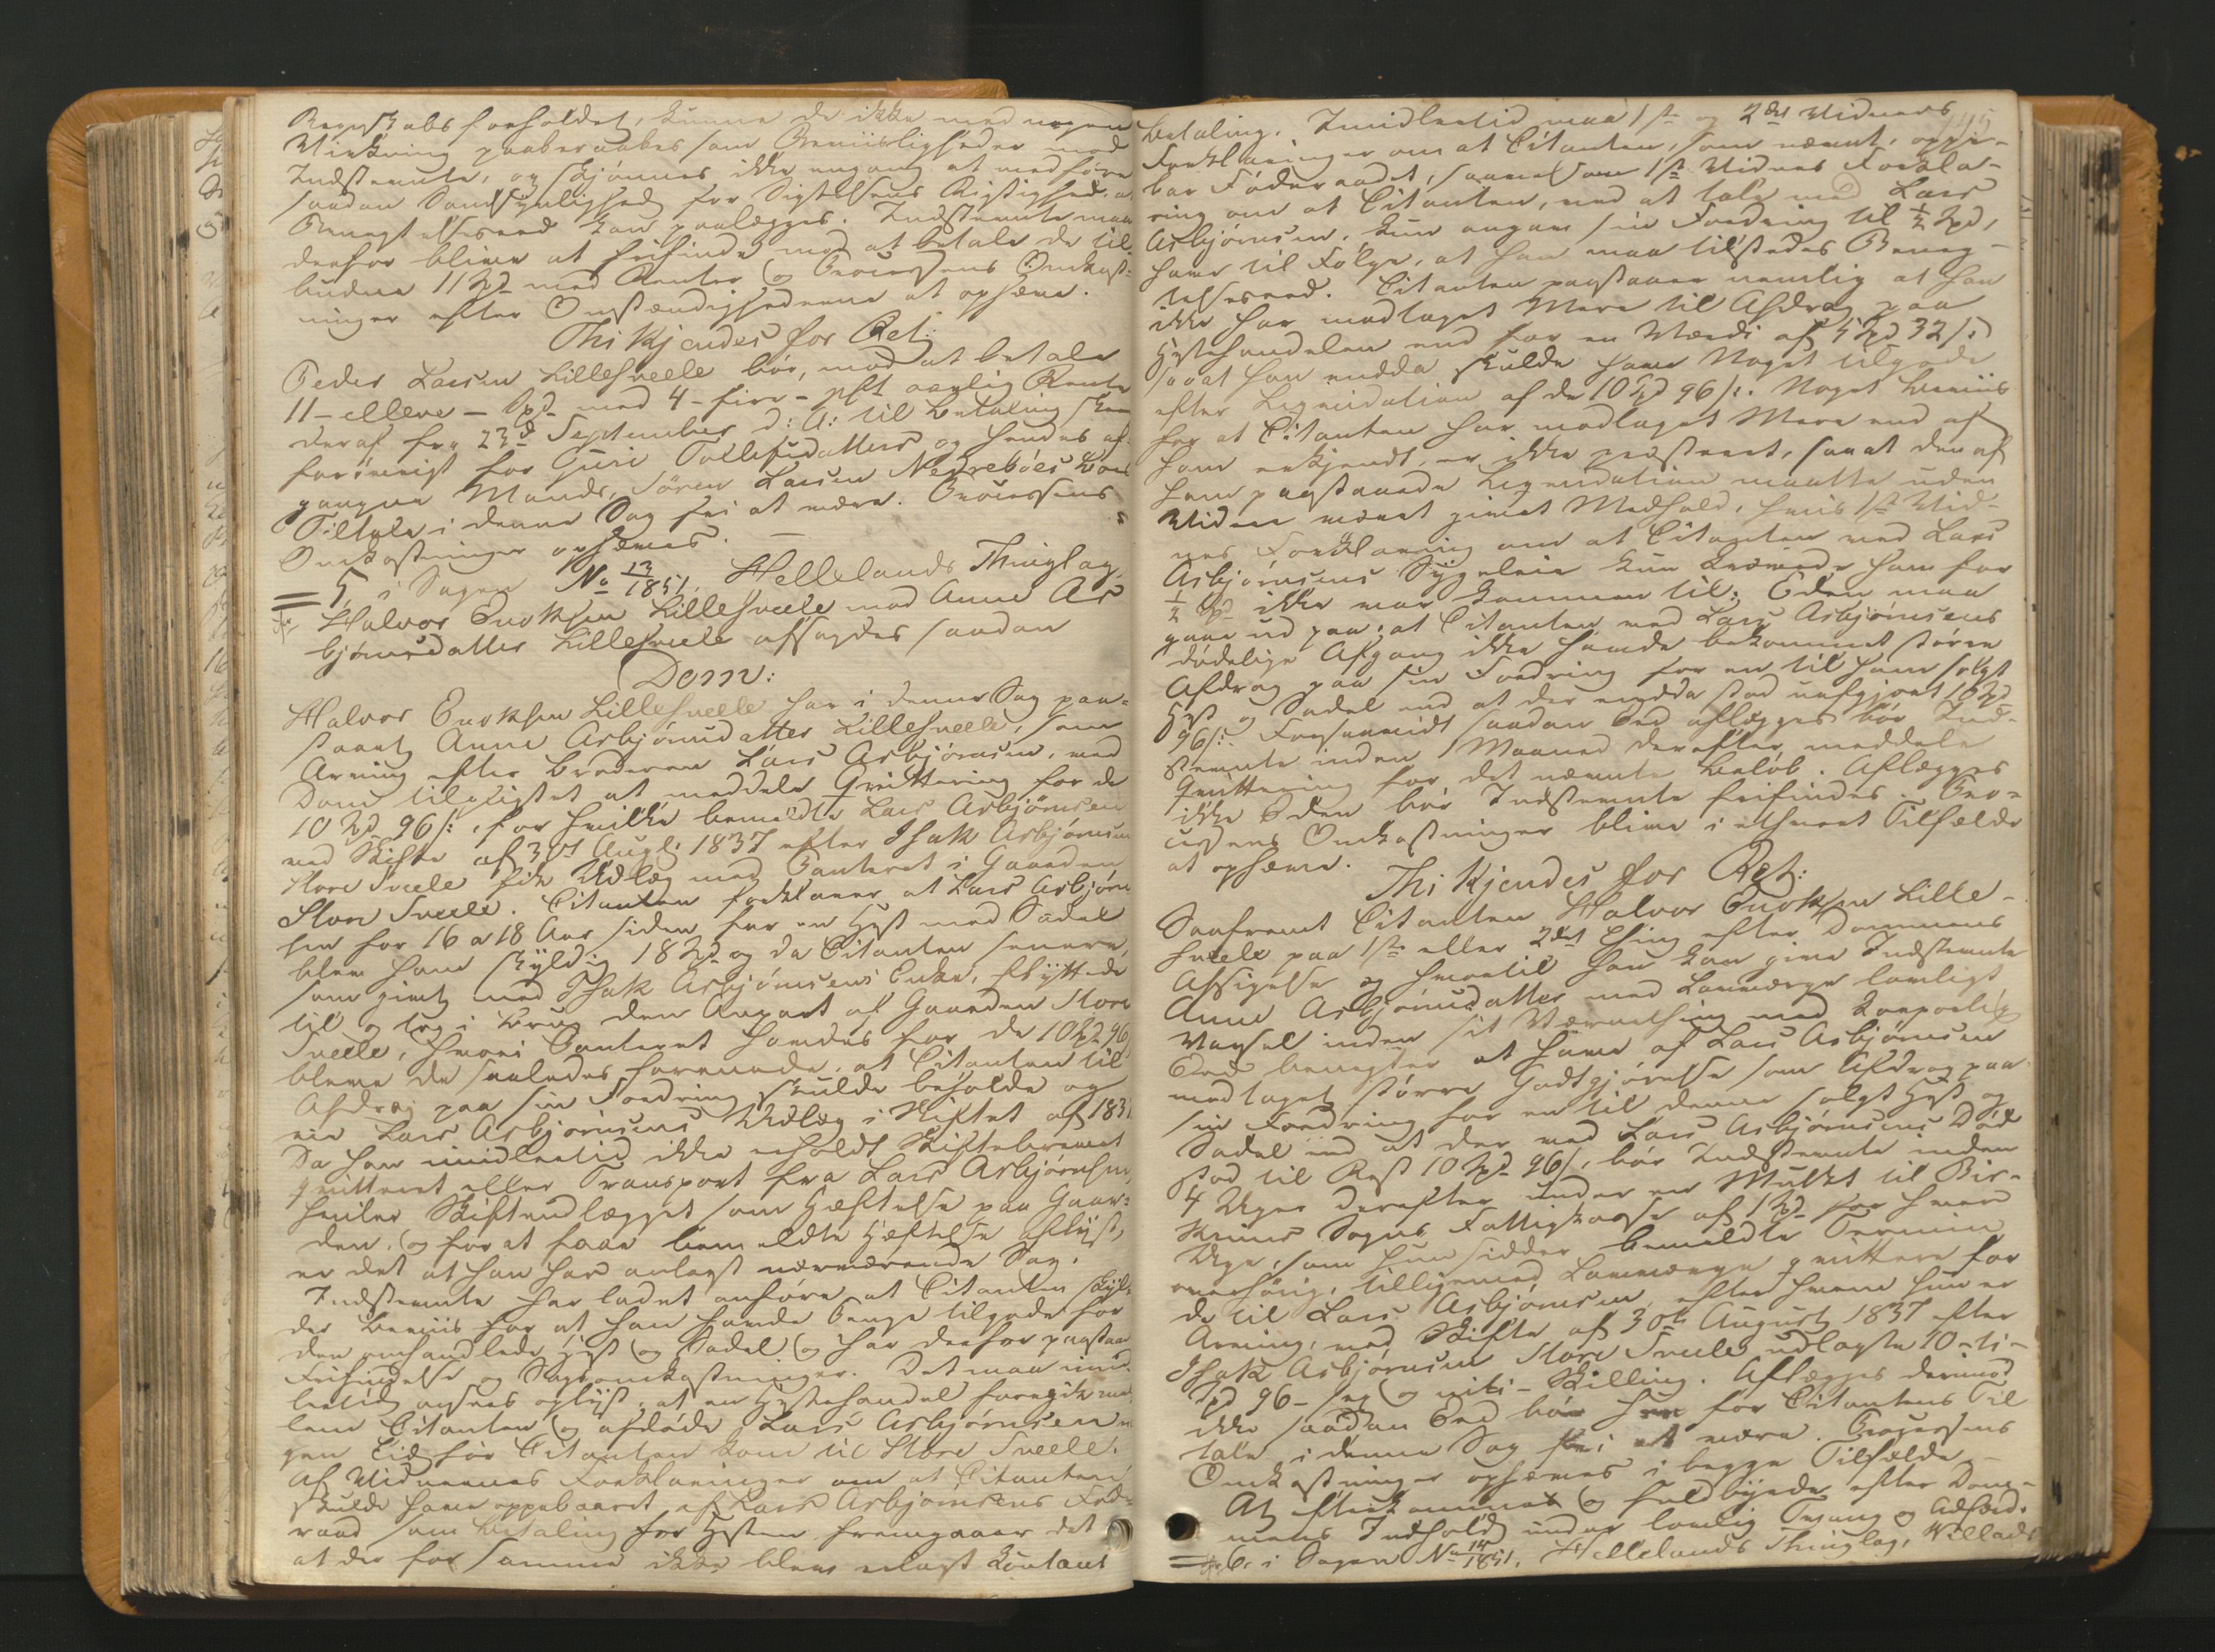 Regnskabsforholdet, kunne de ikke med nogen
Virkning paaberaabes som Beviisligheder mod
Indstevnte, og skjønnes ikke engang at medføre
saadan Sandsynlighed for Sigtelsens Rigtighed, at
Benægtelseseed kan paalægges. Indstevnte maa
derfor blive at frifinde mod at betale de til-
budne 11 Spd. med Renter og Processens Omkost-
ninger efter Omstændighederne at ophæve.
Thi Kjendes for Ret:
Peder Larsen Lillesveele bør, mod at betale
11 - elleve - Spd. med 4 - fire - pCt aarlig Rente
deraf fra 23de September d: A: til Betaling skeer
forøvrigt for Guri Tollefsdatters og hendes af-
gangne Mands, Sören Larsen Nedreböes Boes
Tiltale i denne Sag fri at være. Processens
Omkostninger ophæves. —
5, i Sagen No 13/1851, Hellelands Thinglag,
Halvor Enoksen Lillesveele mod Anne As-
björnsdatter Lillesveele afsagdes saadan
Dom:
Halvor Enoksen Lillesveele har i denne Sag paa-
staaet Anne Asbjörnsdatter Lillesveele, som
Arving efter Broderen Lars Asbjörnsen, ved
Dom tilpligtet at meddele Qvittering for de
10 Spd. 96 s:, for hvilke bemeldte Lars Asbjörnsen
ved Skifte af 30te Augt: 1837 efter Isak Asbjörnsen
Store Sveele fik Udlæg med Panteret i Gaarden
Store Sveele. Citanten forklarer at Lars Asbjörn-
sen for 16 a 18 Aar siden for en Hest med Sadel
blev ham skyldig 18 Spd. og da Citanten senere,
som givt med Isak Asbjörnsens Enke, flyttede
til og tog i Brug den Anpart af Gaarden Store
Sveele, hvori Panteret havdes for de 10 Spd. 96
bleve de saaledes forenede, at Citanten til
Afdrag paa sin Fordring skulde beholde og
eie Lars Asbjörnsens Udlæg i Skiftet af 1837
Da han imidlertid ikke erholdt Skiftebrevet
qvitteret eller Transport fra Lars Asbjörnsen,
hviler Skifteudlægget som Hæftelse paa Gaar-
den, og for at faae bemeldte Hæftelse aflyst,
er det at han har anlagt nærværende Sag.
Indstevnte har ladet anføre at Citanten skyl-
der Beviis for at han havde Penge tilgode for
den omhandlede Hest og Sadel og har derfor paastaaet
Frifindelse og Sagsomkostninger. Det maa imid-
lertid ansees oplyst, at en Hestehandel foregik mel-
lem Citanten og afdøde Lars Asbjörnsen no-
gen Tid før Citanten kom til Store Sveele.
Af Vidnernes Forklaringer om at Citanten
skulde have oppebaaret af Lars Asbjörnsens Føde-
raad som Betaling for Hesten fremgaaer det
at der for samme ikke blev erlagt Contant
Betaling. Imidlertid maa 1ste og 2det Vidnes
Forklaringer om at Citanten, som nævnt, oppe-
bar Føderaadet, saavelsom 1ste Vidnes Forkla-
ring om at Citanten, ved at tale med Lars
Asbjörnsen, kun angav sin Fordring til ½ Spd,
have til Følge, at han maa tilstedes Beneg-
telseseed. Citanten paastaaer nemlig at han
ikke har modtaget Mere til Afdrag paa
Hestehandelen end for en Værdi af 5 Spd 32 s:
saaat han endda skulde have Noget tilgode
efter Liqvidation af de 10 Spd 96 s:. Noget Beviis
for at Citanten har modtaget Mere end af
ham erkjendt, er ikke præsteret, saaat den af
ham paastaaede Liqvidation maatte uden
Videre været givet Medhold, hvis 1ste Vid-
nes Forklaring om at Citanten ved Lars
Asbjörnsens Sygeleie kun krævede ham for
½ Spd. ikke var kommen til. Eden maa
gaae ud paa, at Citanten ved Lars Asbjörnsens
dødelige Afgang ikke havde bekommet større
Afdrag paa sin Fordring for en til ham solgt
Hest og Sadel end at der endda stod uafgjort 10 Spd
96 s:. Forsaavidt saadan Eed aflægges bør Ind-
stevnte inden 1 Maaned derefter meddele
Qvittering for det nævnte Beløb. Aflægges
ikke Eden bør Indstevnte frifindes. Pro-
cessens Omkostninger blive i ethvert Tilfælde
at ophæve.
Thi Kjendes for Ret:
Saafremt Citanten Halvor Enoksen Lille-
sveele paa 1ste eller 2det Thing efter Dommens
Afsigelse og hvortil han kan give Indstevnte
Anne Asbjörnsdatter med Laugværge lovligt
Varsel inden sit Værnething med korporlig
Eed benegter at have af Lars Asbjörnsen
modtaget større Godtgjørelse som Afdrag paa
sin Fordring for en til denne solgt Hest og
Sadel end at der ved Lars Asbjörnsens Död
stod til Rest 10 Spd. 96 s, bør Indstevnte inden
4 Uger derefter under en Mulkt til Bir-
krems Sogns Fattigkasse af 1 Spd. for hver
Uge, som hun sidder bemeldte Termin
overhørig, tilligemed Laugværge qvittere for
de til Lars Asbjörnsen, efter hvem hun er
Arving, ved Skifte af 30te August 1837 efter
Isak Asbjörnsen Store Sveele udlagte 10 - ti -
Spd 96 - sex og niti - Skilling. Aflægges derimod
ikke saadan Eed bør hun for Citantens Til-
tale i denne Sag fri at være. Processens
Omkostninger ophæves i begge Tilfælde. —
At efterkommes og fuldbyrdes efter Dom-
mens Indhold under lovlig Tvang og Adfærd.
6. i Sagen No 14/1851. Hellelands Thinglag,